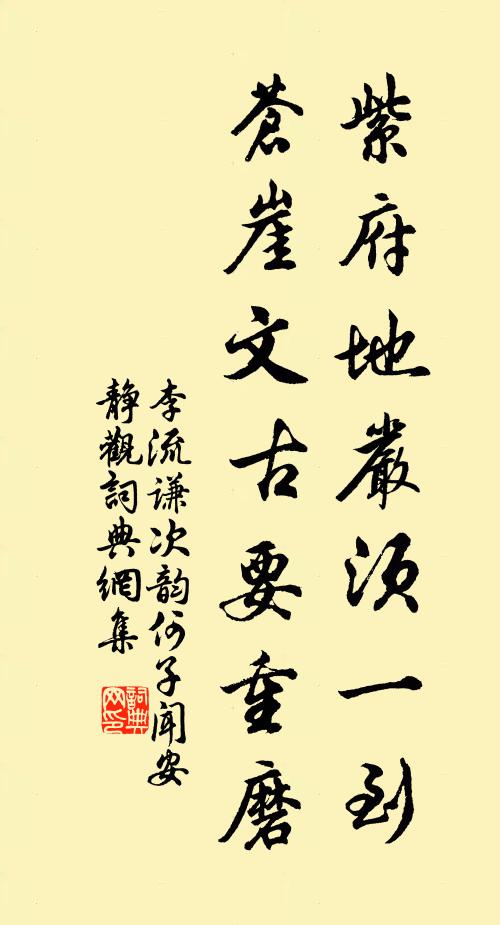 紫府地嚴須一到
蒼崖文古要重磨
李流谦次韵何子闻安
静觀詞典網集
詞典网印